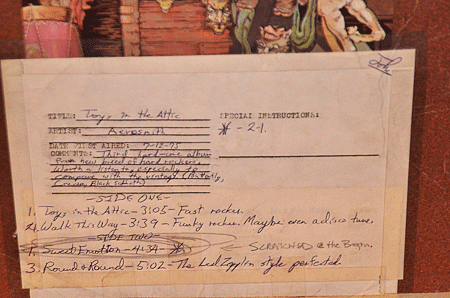 TITLE: Toys in the Attic
SPECIAL INSTRUCTIONS:
ARTIST: Aerosmith
* -2-1.
DATE FIRST AIRED: 9-12-75
COMMENTS: Third hard-one album
from new breed of hard rockers.
Worth a listen to, especially to
compare with the vintage (Butterfly,
Cream, Black Sabbath)
-SIDE ONE-
1. Toys in the Attic - 3:05 - Fast rocker.
2. Walk This Way - 3:39 - Funky rocker. Maybe even a disco tune.
-SIDE TWO-
1. Sweet Emotion - 4:34 - * ← SCRATCHED @ the Begin.
3. Round & Round - 5:02 - The Led Zepplin style perfected.